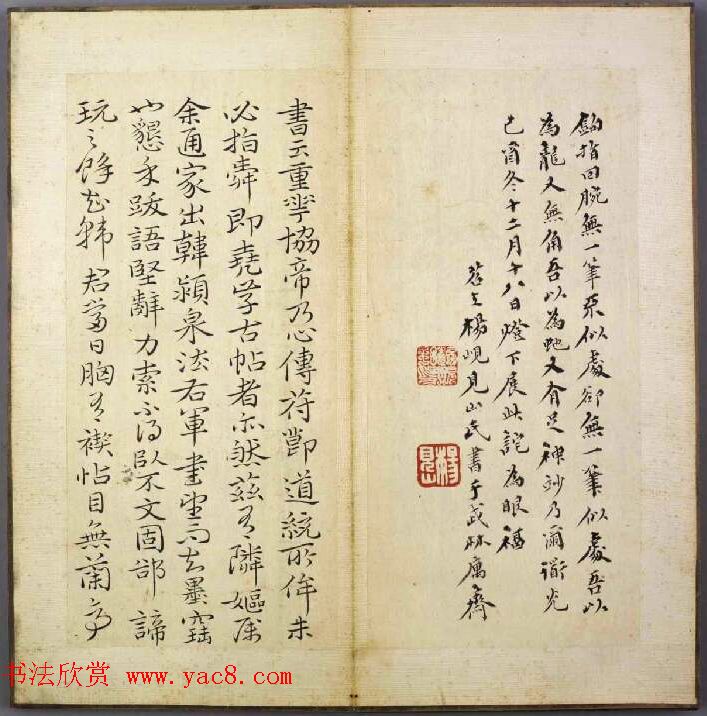 鉤指回腕無一筆似處卻無一筆似處吾以
為龍又無角吾以為虵又有足神妙乃爾道光
己酉冬十二月十八日燈下展此詫為眼福
苕上楊峴見山氏書于武林寓齋
書云重華協帝乃心傳苻道統所侔未
必指舜即堯学古帖者亦然茲有隣嫗屬
余通家出韓潁泉法右軍書望而知墨
也懇予跋語堅辭力索不得以不文固郤諦
玩之餘知韓君當日胸有禊帖目無蘭亭
书法欣赏 www.yac8.com